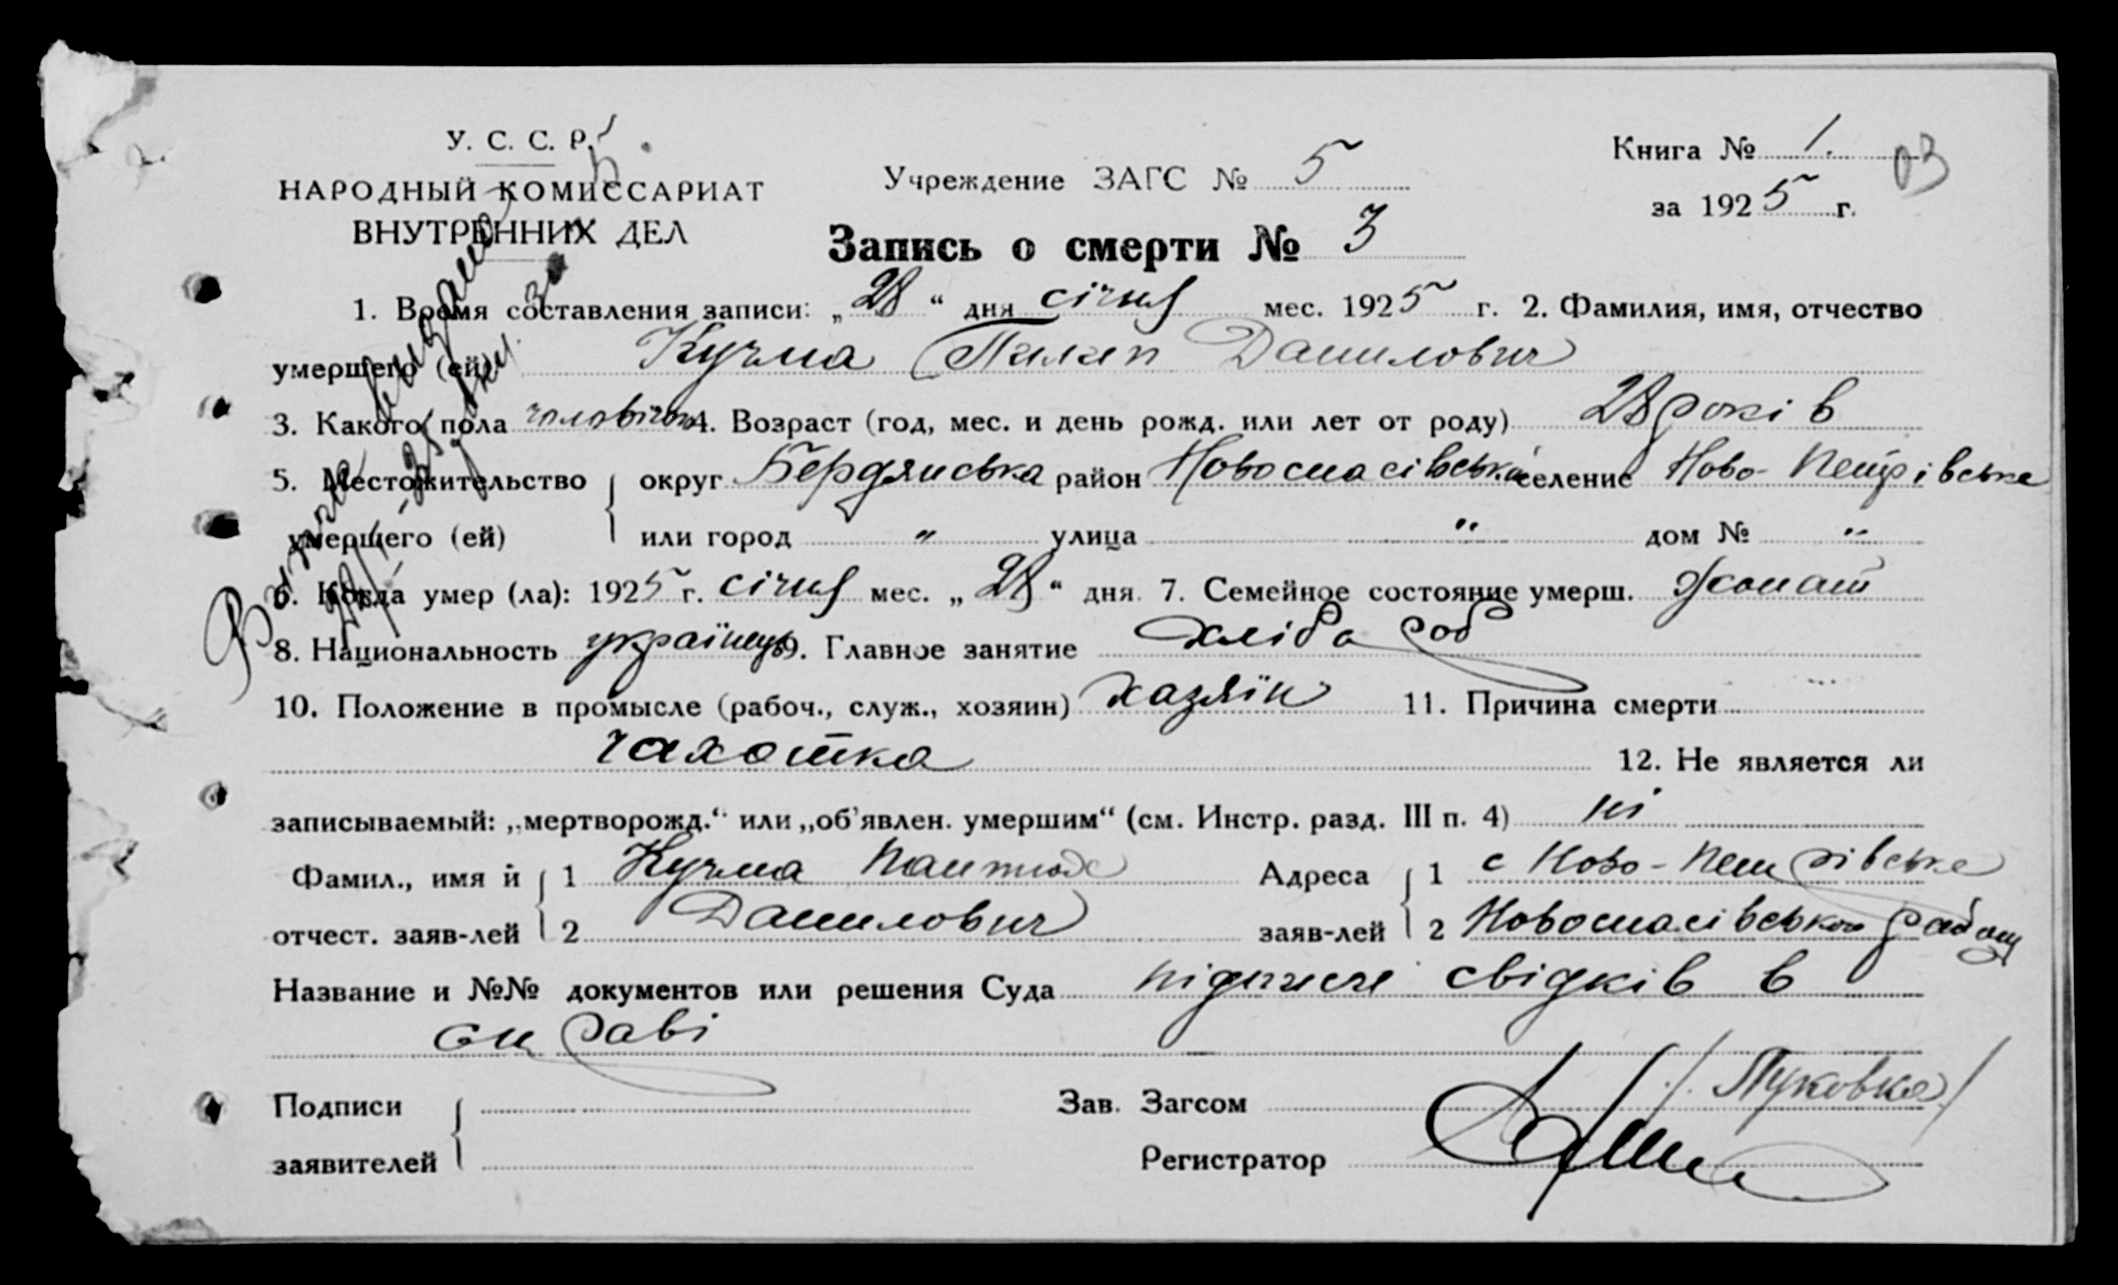 У. С. С. Р.
НАРОДНЫЙ КОМИССАРИАТ
ВНУТРЕННИХ ДЕЛ
Учреждение ЗАГС № 5
Книга № 1. 03
за 1925 г.
Запись о смерти № 3
1. Время составления записи: „28“ дня січня мес. 1925 г. 2. Фамилия, имя, отчество
умершего (ей) Кучма Пилип Данилович
3. Какого пола 4. Возраст (год, мес. и день рожд. или лет от роду) 28 років
5. Местожительство округ Бердянська район Новоспасівська селение Ново-Петрівське
умершего (ей) или город " улица " дом № "
6. Когда умер (ла): 1925 г. січня мес. „28“ дня. 7. Семейное состояние умерш. жонат
8. Национальность українець 9. Главное занятие хлібороб
10. Положение в промысле (рабоч., служ., хозяин) хазяїн 11. Причина смерти
чахотка 12. Не является ли
записываемый: „мертворожд.“ или „об'явлен. умершим“ (см. Инстр. разд. III п. 4) ні
Фамил., имя и 1 Кучма Адреса 1 с Ново-Петрівське
отчест. заяв-лей 2 Данилович заяв-лей 2 Новоспасівського району
Название и №№ документов или решения Суда підписі свідків в
справі
Подписи Зав. Загсом
заявителей Регистратор